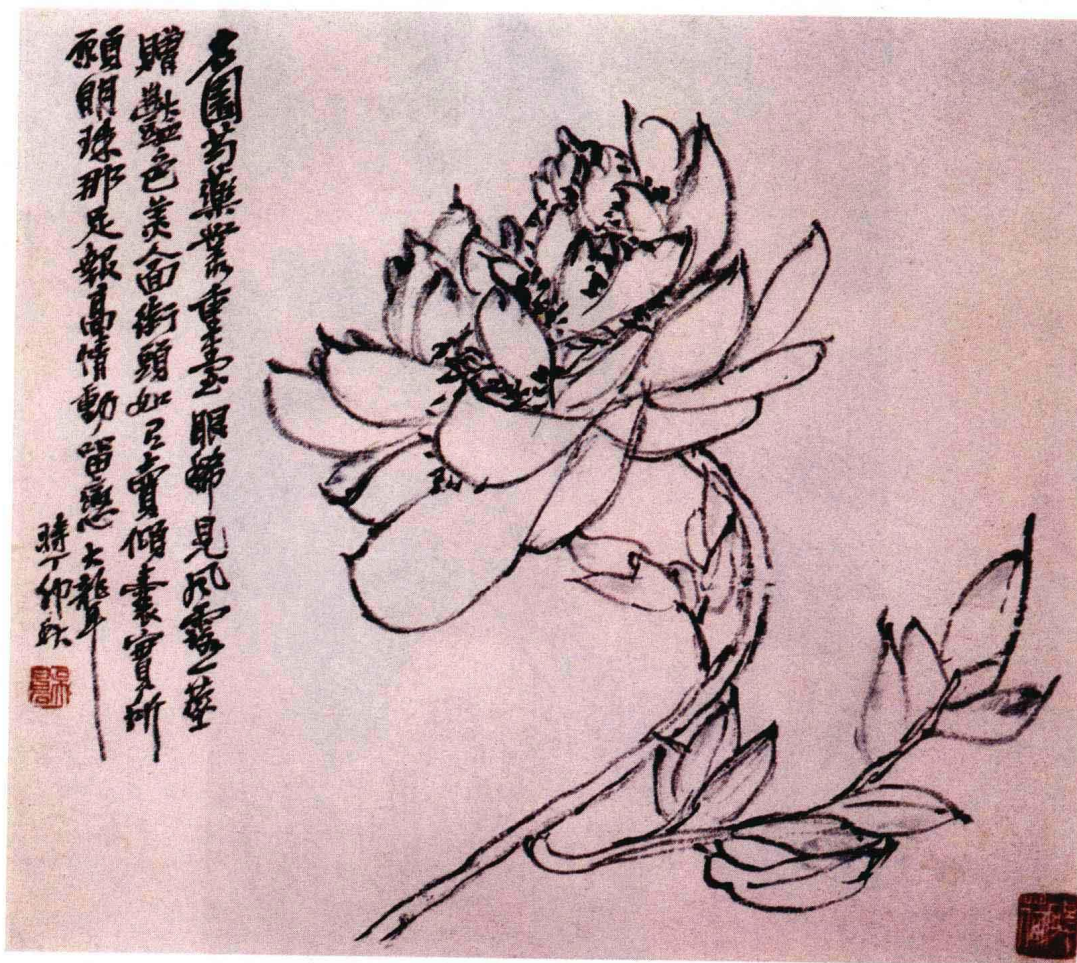 名園芍藥叢重臺眼稀見風露一莖
贈豔色美人面街頭如可賣傾囊實所
願明珠那足報高情動留戀 大聾
時丁卯秋